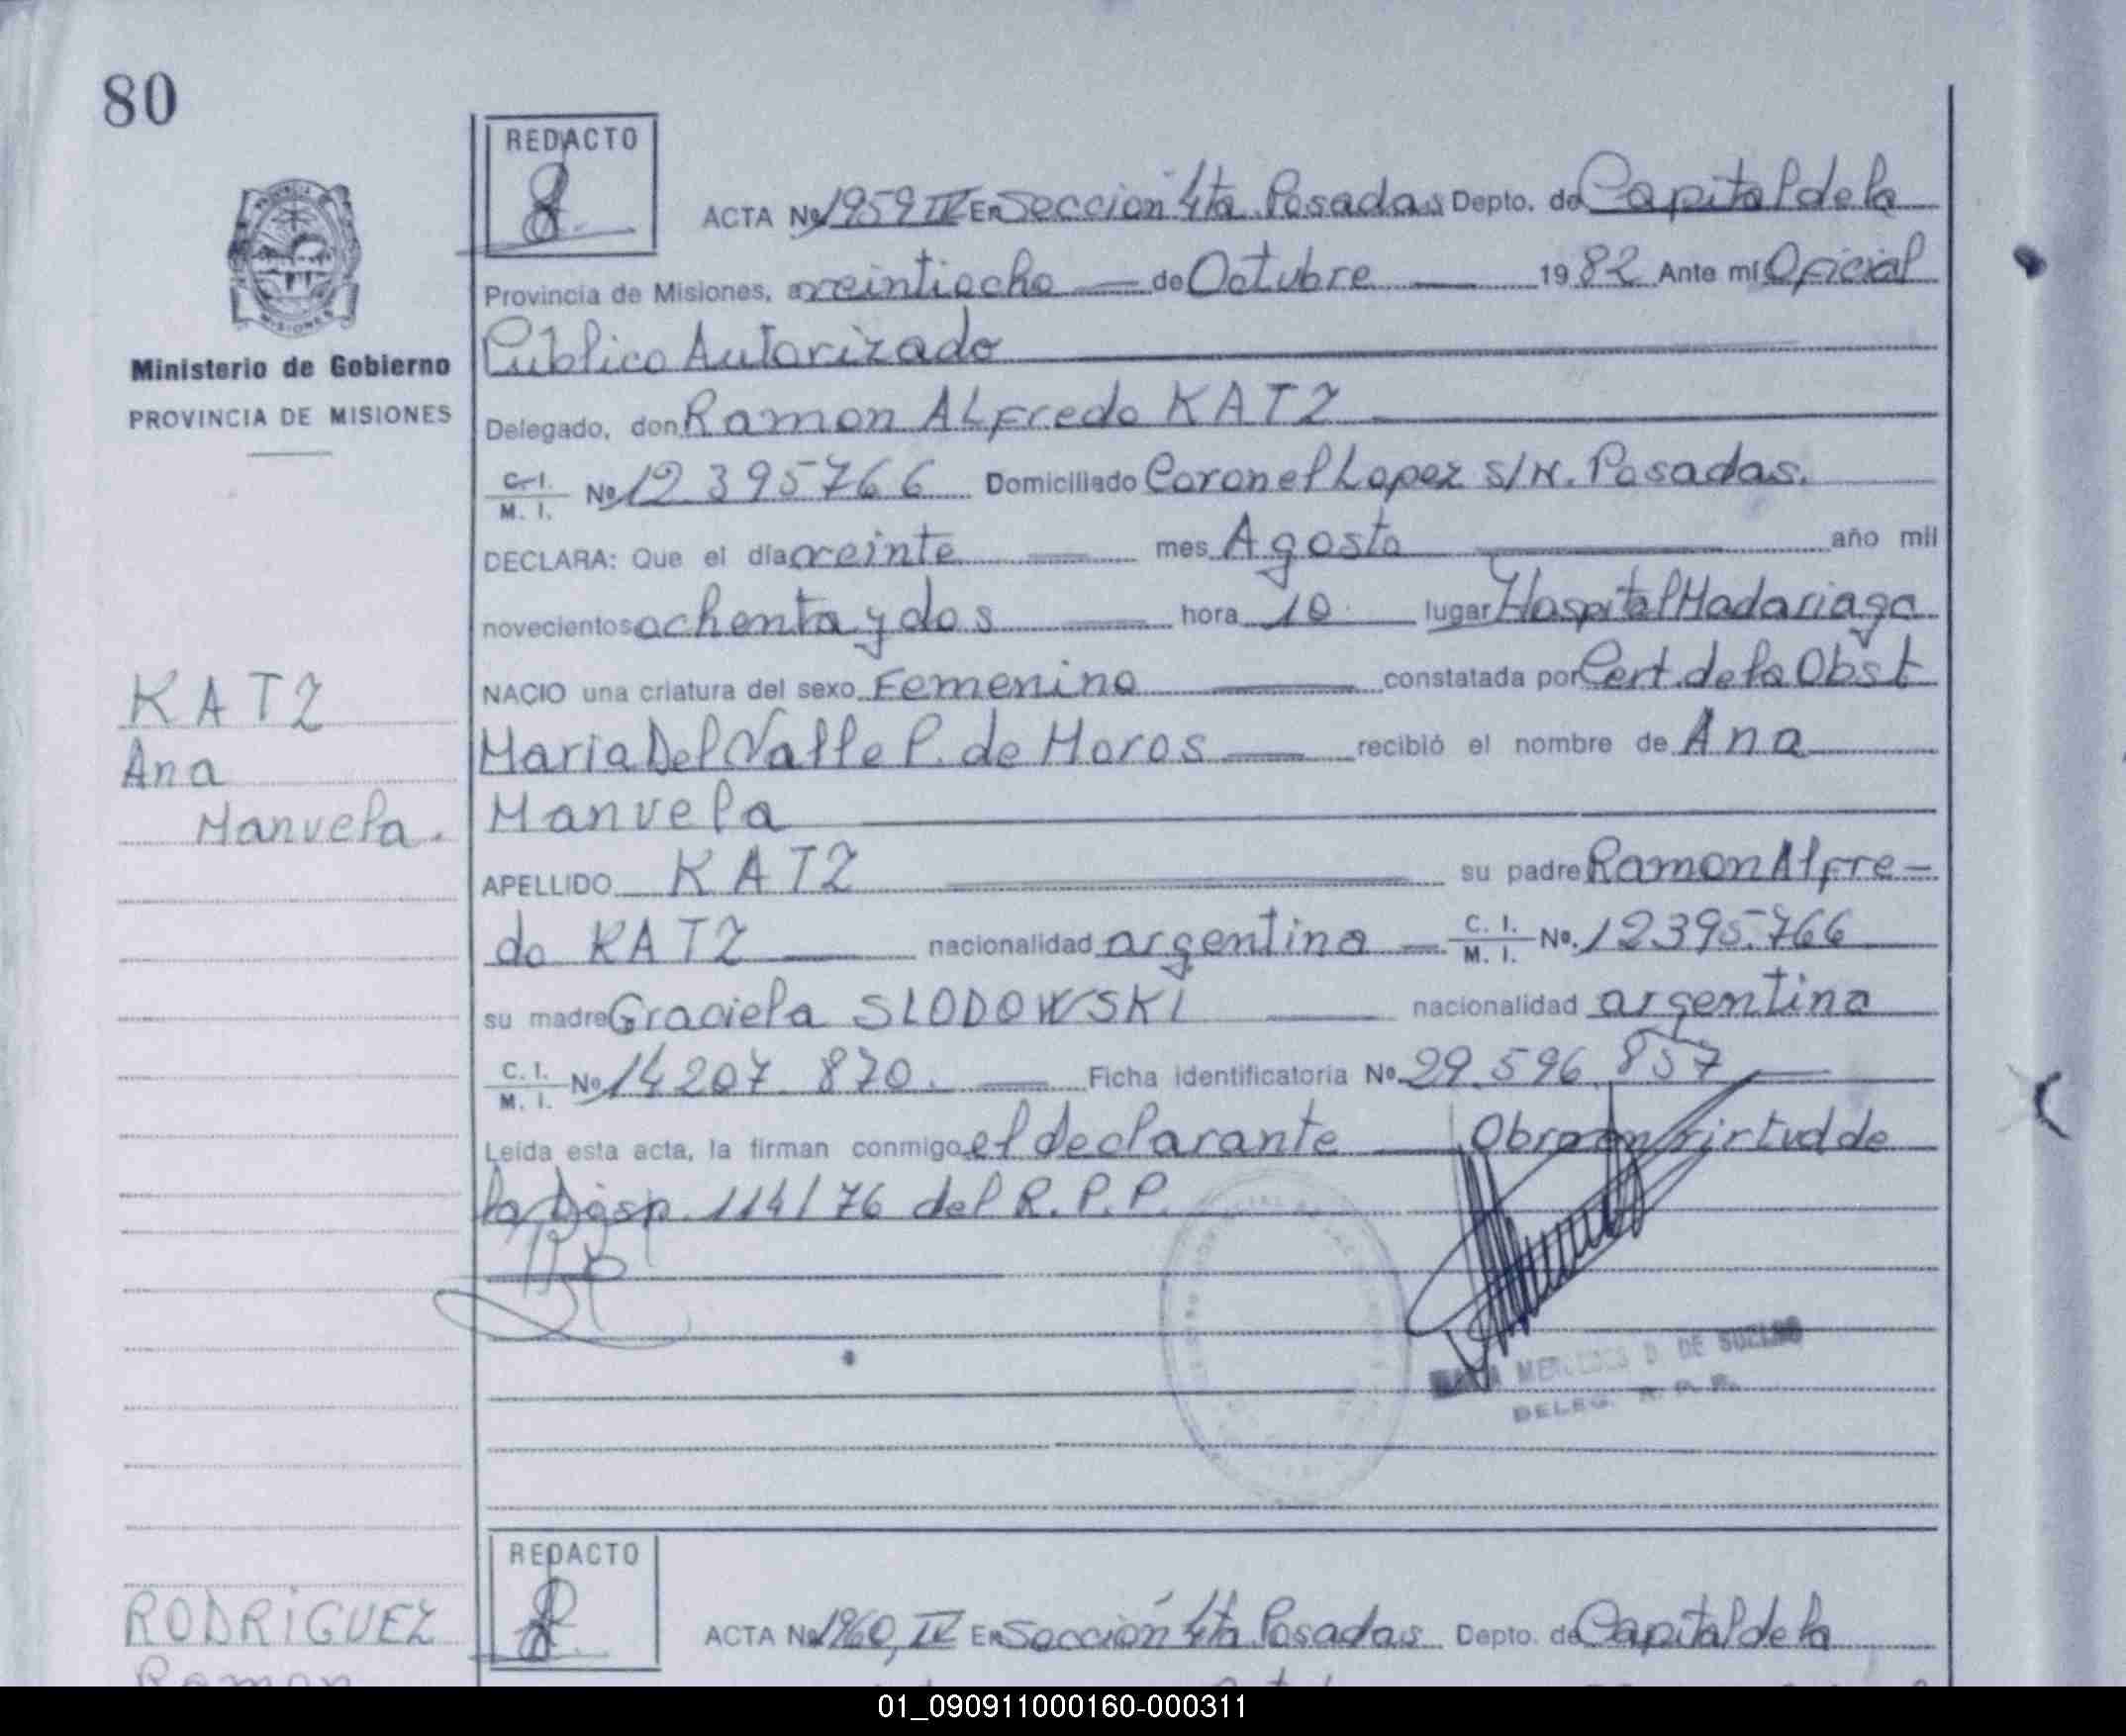 80
REDACTO
ACTA Nº 1959 IV En Sección 4ta. Posadas Depto. de Capital de la
Provincia de Misiones, a veintiocho de Octubre 1982 Ante mí Oficial
Ministerio de Gobierno
PROVINCIA DE MISIONES
MISIONES
Público Autorizado
Delegado, don Ramon ALFredo KATZ
C. I. M. I. Nº 12.395766 Domiciliado Coronel Lopez S/N. Posadas.
DECLARA: Que el día veinte mes Agosto año mil
novecientos ochenta y dos hora 10 lugar Hospital Madariaga
NACIO una criatura del sexo Femenino constatada por Cert. de la Obst
Maria Del Valle P. de Moros recibió el nombre de Ana
Manuela
KATZ
Ana
Manuela.
APELLIDO KATZ su padre Ramon Alfre-
do KATZ nacionalidad argentina C. I. M. I. Nº. 12395.766
su madre Graciela SLODOWSKI nacionalidad argentina
C. I. M. I. Nº 14207.870. Ficha identificatoria Nº. 29.596.857
Leída esta acta, la firman conmigo el declarante Obra en virtud de
la Disp. 114/76 del R.P.P.
MERCEDES D. DE SUELDO
DELEG. R. P. P.
REDACTO
RODRIGUEZ
Ramon
ACTA Nº 1960, IV En Sección 4ta. Posadas Depto. de Capital de la
01_090911000160-000311